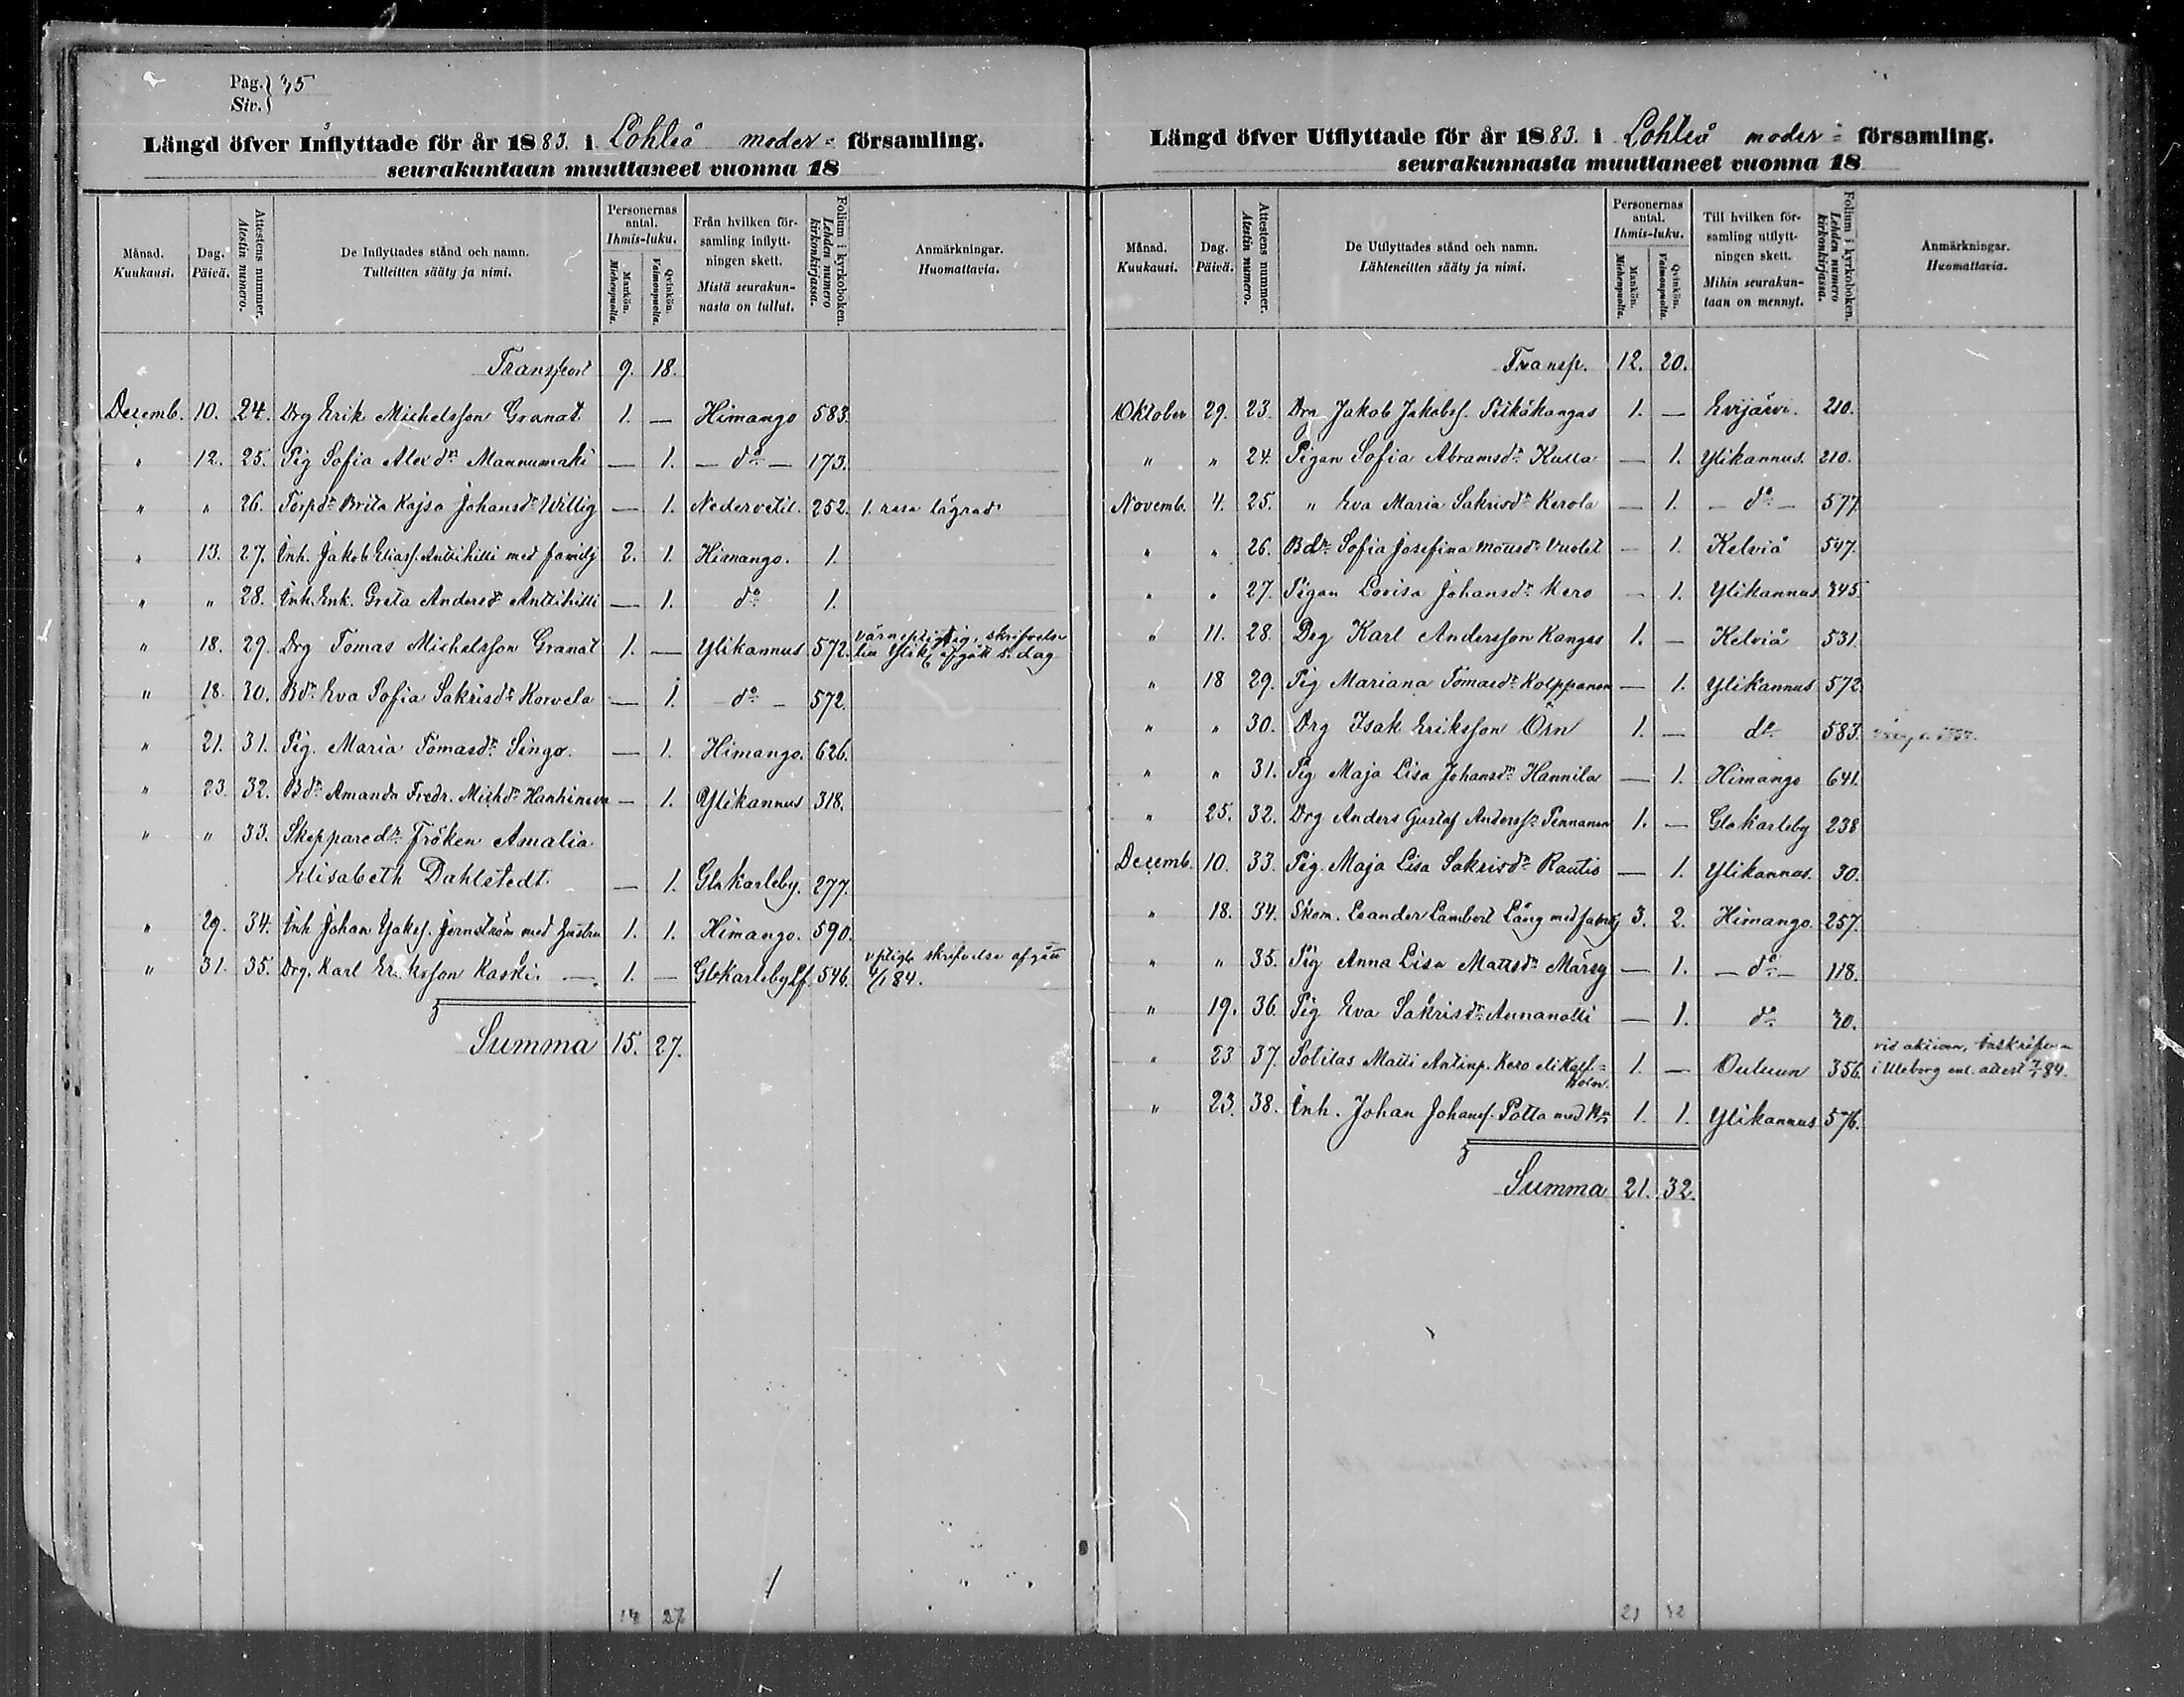 Pag. } 35
Siv. }
Längd öfver Inflyttade för år 1883. i Lohteå moder- församling.
seurakuntaan muuttaneet vuonna 18
Månad. Kuukausi.
Dag. Päivä.
Attestens nummer. Atestin numero.
De Inflyttades stånd och namn. Tulleitten sääty ja nimi.
Personernas antal. Ihmis-luku.
Mankön. Miehenpuolta.
Qvinkön. Vaimonpuolta.
Från hvilken församling inflyttningen skett. Mistä seurakunnasta on tullut.
Folium i kyrkoboken. Lehden numero kirkonkirjassa.
Anmärkningar. Huomattavia.
Transport 9. 18.
Decemb. 10. 24. Drg Erik Michelsson Granat 1. — Himango 583.
" 12. 25. Pig Sofia Alex dr Mannumaki — 1. — do — 173.
" " 26. Torpdr Brita Kajsa Johansdr Willig — 1. Nedervetil. 252. 1. resa lägrad
" 13. 27. Inh. Jakob Eliass. Anttihilli med familj 2. 1. Himango. 1.
" " 28. Inh. Enk. Greta Andersdr Anttihilli — 1. do 1.
" 18. 29. Drg Tomas Michelsson Granat 1. — Ylikannus 572. värnepligtig, skrifvelse till Ylik afgått s. dag
" 18. 30. Bdr Eva Sofia Sakrisdr Korvela — 1. — do — 572.
" 21. 31. Pig. Maria Tomasdr Singo. — 1. Himango. 626.
" 23. 32. Bdr Amanda Fredr. Michdr Hanhineva — 1. Ylikannus 318.
" " 33. Skepparedr Fröken Amalia
Elisabeth Dahlstedt. — 1. Gla Karleby. 277.
" 29. 34. Inh Johan Jakss. Jernström med hustru 1. 1. Himango. 590.
" 31. 35. Drg. Karl Eriksson Kaski. — 1. — Gla Karleby Lf. 546. vpligt. skrifvelse afgått 4/1 84.
Summa 15. 27.
27
Längd öfver Utflyttade för år 1883. i Lohteå moder- församling.
seurakunnasta muuttaneet vuonna 18
Månad. Kuukausi.
Dag. Päivä.
Attestens nummer. Atestin numero.
De Utflyttades stånd och namn. Lähteneitten sääty ja nimi.
Personernas antal. Ihmis-luku.
Mankön. Miehenpuolta.
Qvinkön. Vaimonpuolta.
Till hvilken församling utflyttningen skett. Mihin seurakuntaan on mennyt.
Folium i kyrkoboken. Lehden numero kirkonkirjassa.
Anmärkningar. Huomattavia.
Transp. 12. 20.
Oktober 29. 23. Drg Jakob Jakobss. Pitkäkangas 1. — Evijärvi. 210.
" " 24. Pigan Sofia Abramsdr Kulla — 1. Ylikannus. 210.
Novemb. 4. 25. " Eva Maria Sakrisdr Kerola — 1. — do — 577.
" " 26. Bdr Sofia Josefina Mattsdr Vuolet — 1. Kelviå 547.
" " 27. Pigan Lovisa Johansdr Kero — 1. Ylikannus 345.
" 11. 28. Drg Karl Andersson Kangas 1. — Kelviå 531.
" 18 29. Pig Mariana Tomasdr Kolppanen — 1. Ylikannus 572.
" " 30. Drg Isak Eriksson Örn 1. — do 583.
" " 31. Pig Maja Lisa Johansdr Hannila — 1. Himango 641.
" 25. 32. Drg Anders Gustaf Anderss. Pennanen 1. — Gla Karleby 238
Decemb. 10. 33. Pig. Maja Lisa Sakrisdr Rautio — 1. Ylikannus. 30.
" 18. 34. Skom. Leander Lambert Lång med familj 3. 2. Himango. 257.
" " 35. Pig Anna Lisa Mattsdr Märsy — 1. — do — 118.
" 19. 36. Pig Eva Sakrisdr Annanolli — 1. do 30.
" 23 37. Sotilas Matti Antinp. Kero eli Kattholm. 1. — Ouluun 356. vid aktiven, inskrifven i Uleborg enl. attest 7/1 84.
" 23. 38. Inh. Johan Johanss. Potta med hu 1. 1. Ylikannus 576.
Summa 21. 32.
21 32